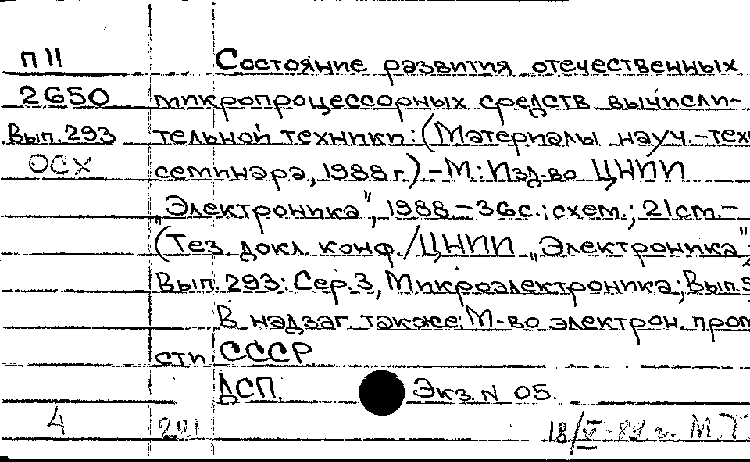 П11 Состояние развития отечественных
2650 микропроцессорных средств вычисли-
Вып.293 тельной техники: (Материалы науч.-тех
ОСХ семинара, 1988 г.) - М: Изд-во ЦНИИ
„Электроника", 1988 - 36с.: схем.; 21см -
(Тез. докл. конф. / ЦНИИ „Электроника";
Вып. 293: Сер. 3, Микроэлектроника; Вып.
В надзаг. также: М-во электрон. пром
сти СССР
ДСП. Экз. N 05.
4 201 18/V-89 г. М.Т